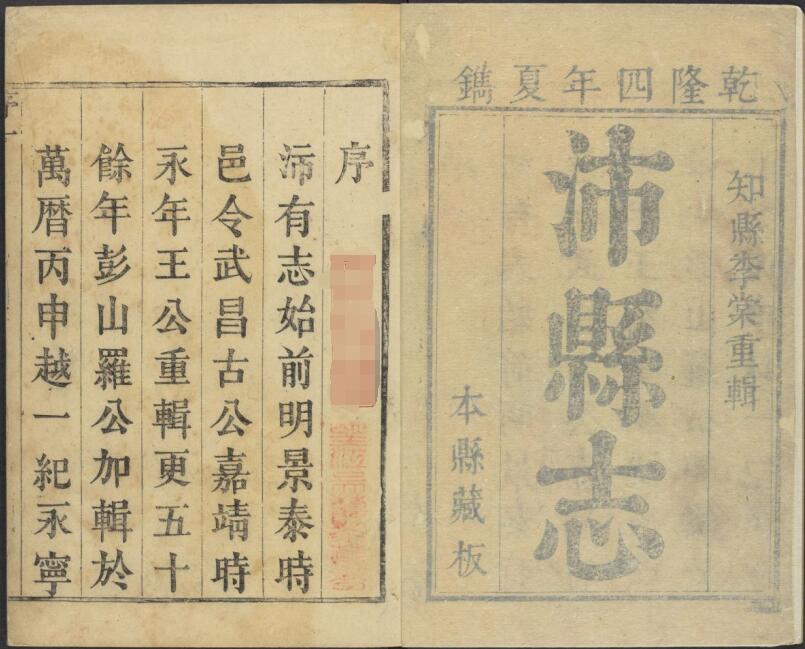 乾隆四年夏鐫
知縣李棠重輯
沛縣志
本縣藏板
序
沛有志始前明景泰時
邑令武昌古公嘉靖時
永年王公重輯更五十
餘年彭山羅公加輯於
萬曆丙申越一紀永寧